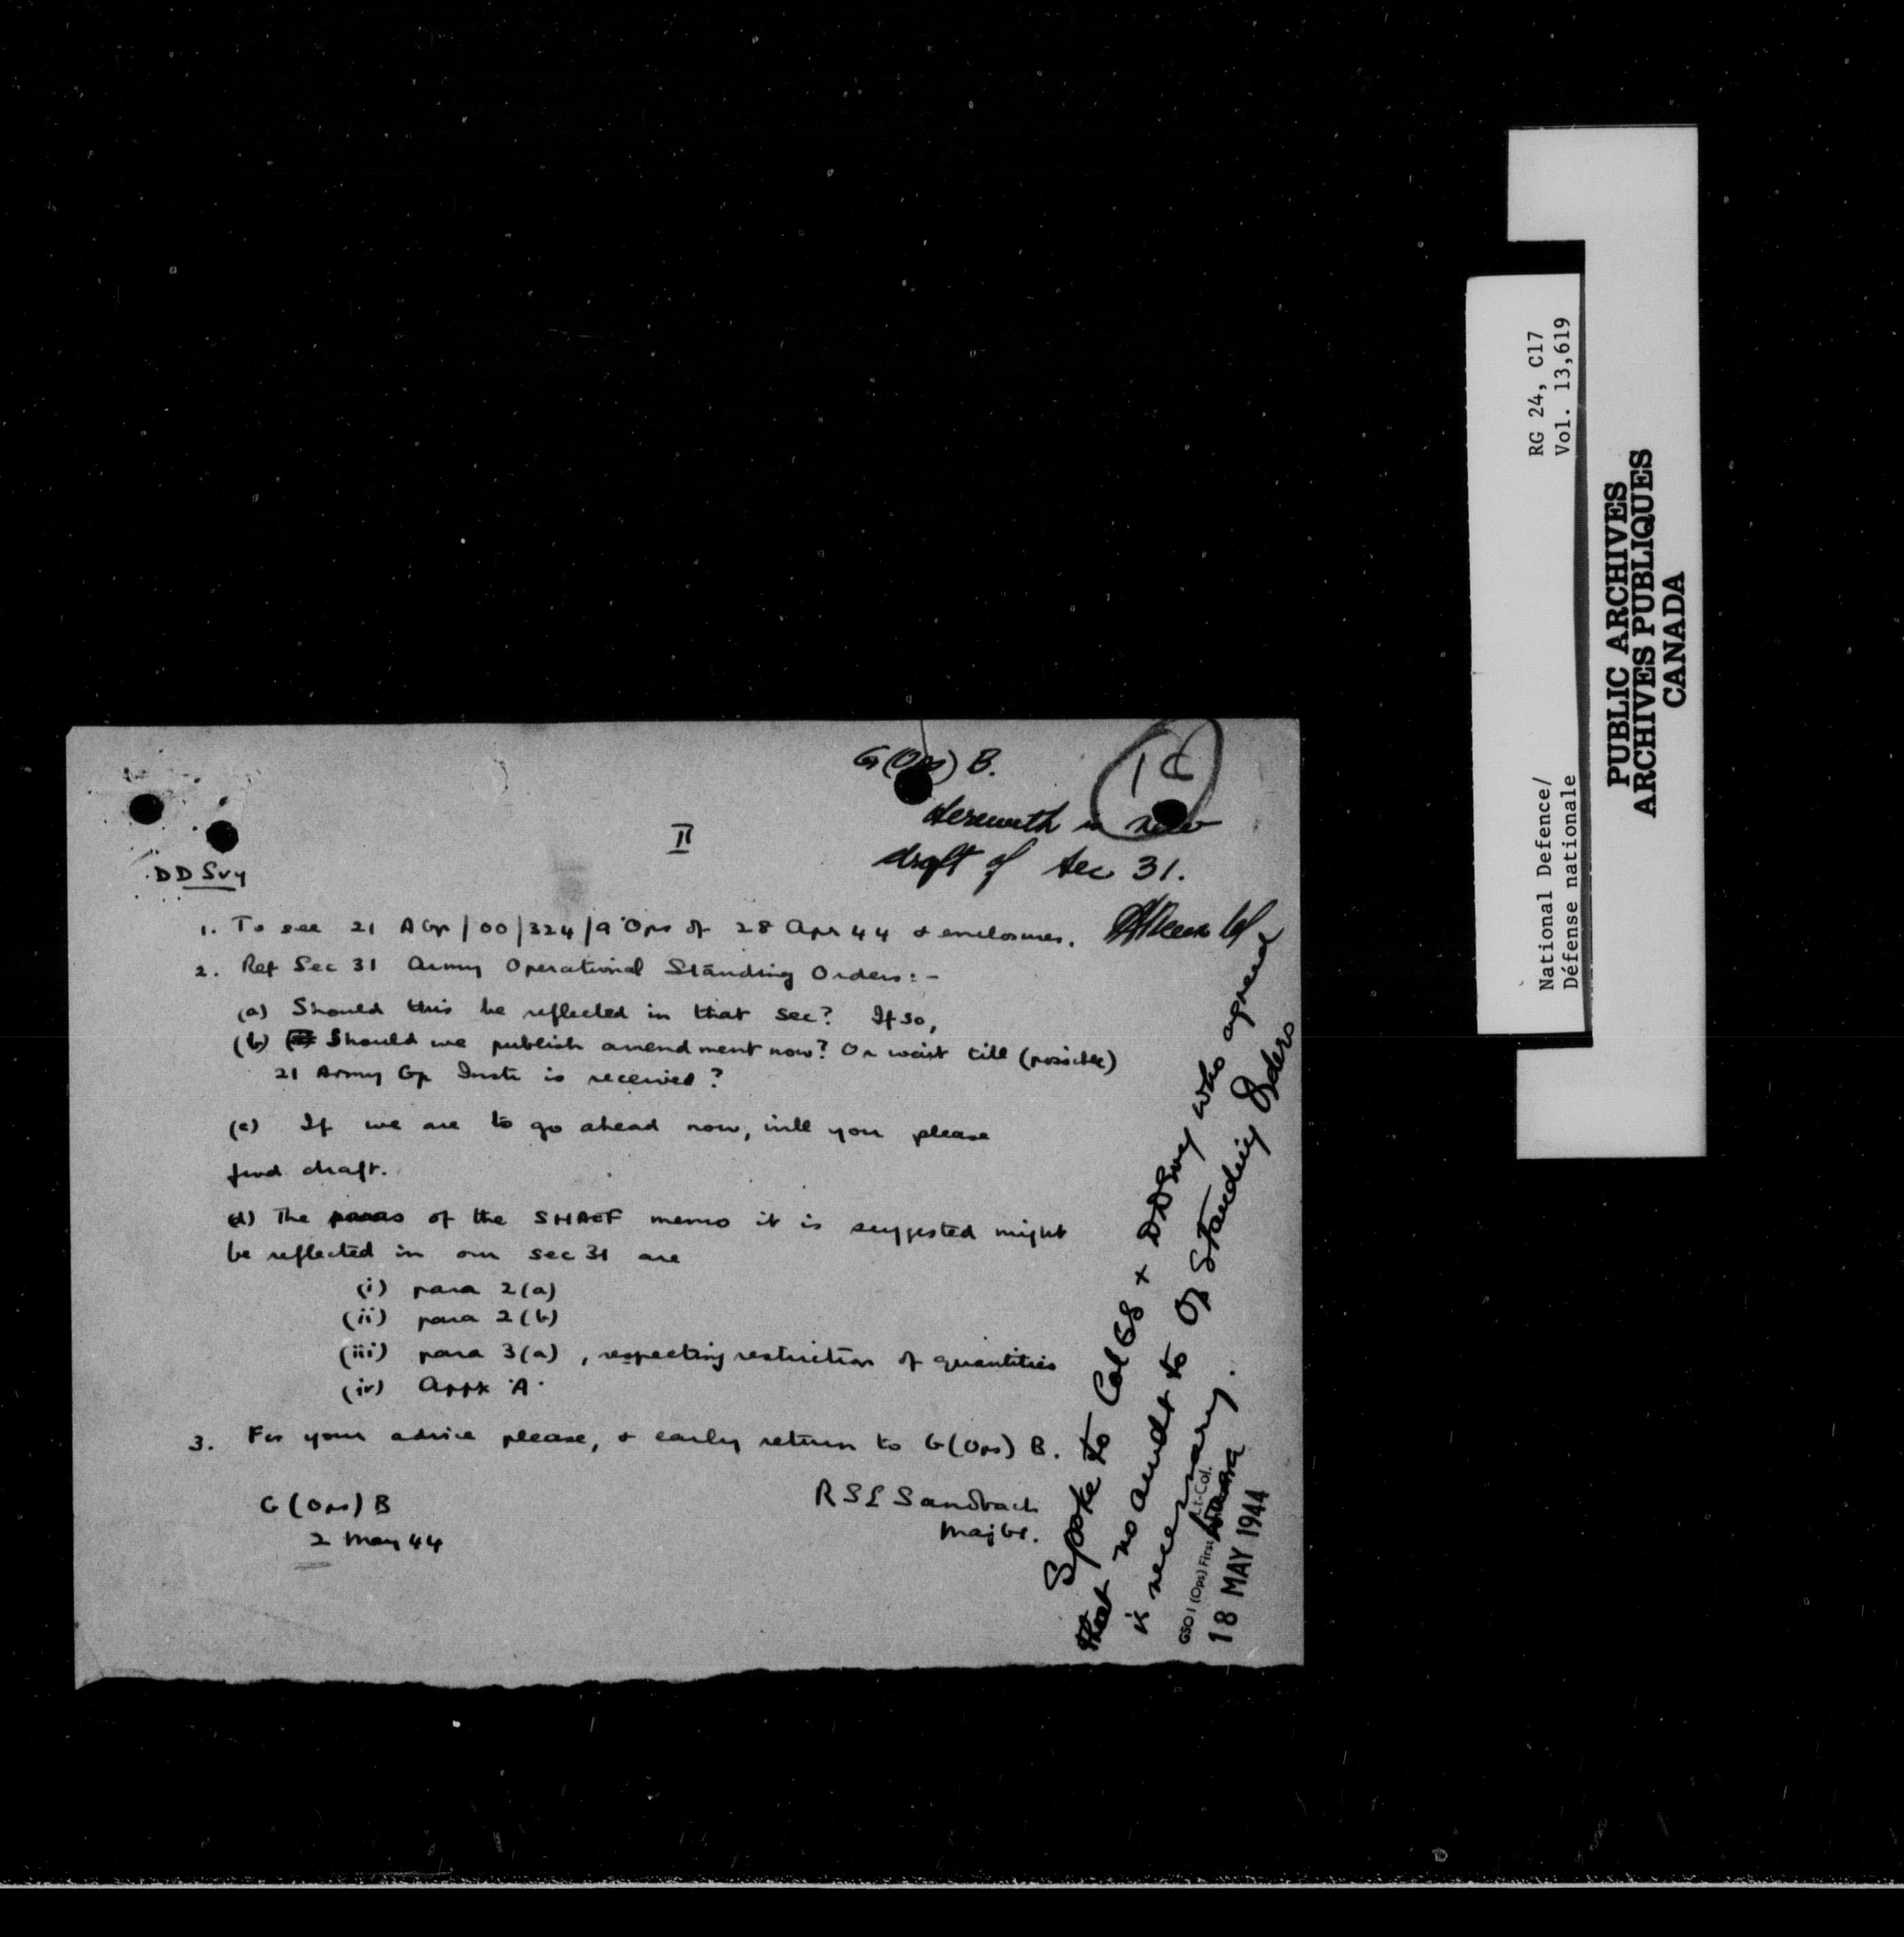 G(Ops) B.
Herewith is new
draft of Sec 31.
II
DD Svy
1. To see 21 A Gp/00/324/9 Ops of 28 Apr 44 & enclosures.
2. Ref Sec 31 Army Operational Standing Orders:-
(a) Should this be reflected in that sec? If so,
(b) Should we publish amendment now? Or wait till (possible)
21 Army Gp Instr is received?
(c) If we are to go ahead now, will you please
fwd draft.
(d) The paras of the SHAEF memo it is suggested might
be reflected in our sec 31 are
(i) para 2(a)
(ii) para 2(b)
(iii) para 3(a), respecting restriction of quantities
(iv) Appx 'A'
3. For your advice please, & early return to G(Ops) B.
G(Ops) B
2 May 44
RSE Sandbach
Maj
Spoke to Col GS & DDSvy who agreed
that no amdt to Op Standing Orders
is necessary.
Lt-Col.
GSO I (Ops) First
18 MAY 1944
National Defence/
Défense nationale
RG 24, C17
Vol. 13,619
PUBLIC ARCHIVES
ARCHIVES PUBLIQUES
CANADA